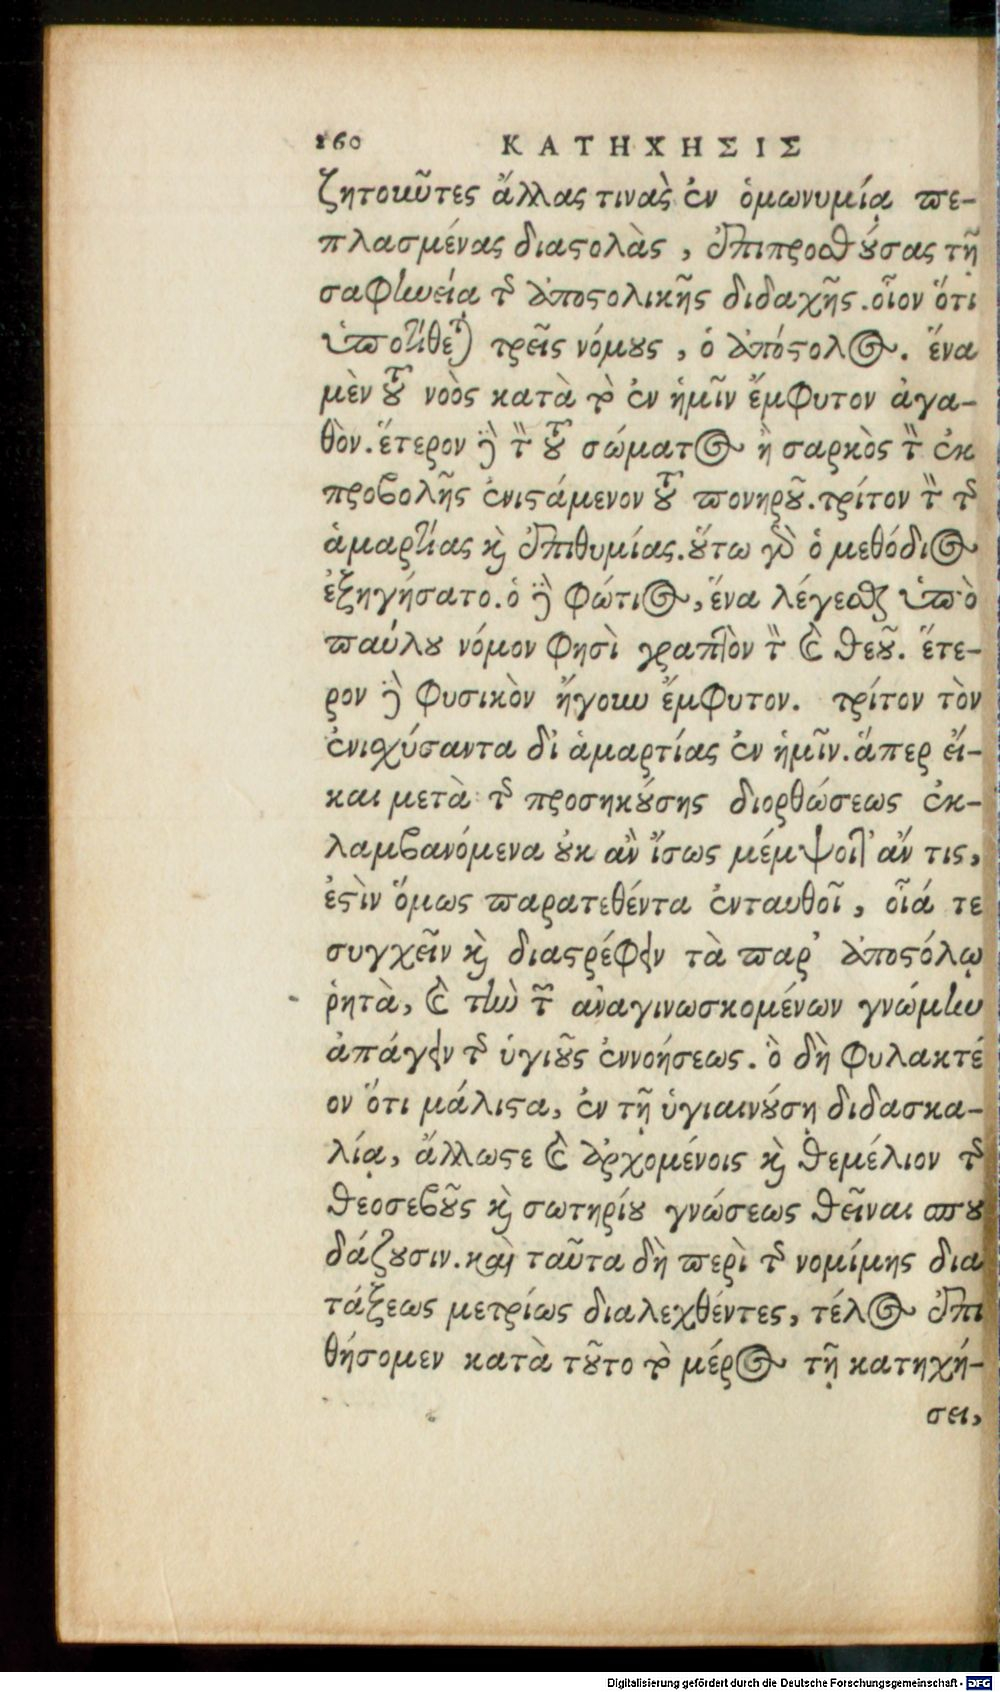 160 ΚΑΤΗΧΗΣΙΣ
ζητοῦντες ἄλλας τινὰς ἐν ὁμωνυμίᾳ πε-
πλασμένας διαστολὰς, ἐπιπροσθούσας τῇ
σαφηνείᾳ τῆς ἀποστολικῆς διδαχῆς. οἷον ὅτι
ὑποτίθεται τρεῖς νόμους, ὁ ἀπόστολος. ἕνα
μὲν τοῦ νοὸς κατὰ τὸ ἐν ἡμῖν ἔμφυτον ἀγα-
θὸν. ἕτερον δὲ τὸν τοῦ σώματος ἢ σαρκὸς τὸν ἐκ
προβολῆς ἐνιστάμενον τοῦ πονηροῦ. τρίτον τὸν τῆς
ἁμαρτίας καὶ ἐπιθυμίας. οὕτω γὰρ ὁ μεθόδιος
ἐξηγήσατο. ὁ δὲ φώτιος, ἕνα λέγεσθαι ὑπὸ
παύλου νόμον φησὶ γραπτὸν τὸν καὶ θεοῦ. ἕτε-
ρον δὲ φυσικὸν ἤγουν ἔμφυτον. τρίτον τὸν
ἐνισχύσαντα δι ἁμαρτίας ἐν ἡμῖν. ἅπερ εἴ-
και μετὰ τῆς προσηκούσης διορθώσεως ἐκ-
λαμβανόμενα οὐκ ἂν ἴσως μέμψοιτ’ ἄν τις,
ἐστὶν ὅμως παρατεθέντα ἐνταυθοῖ, οἷά τε
συγχεῖν καὶ διαστρέφειν τὰ παρ’ ἀποστόλῳ
ῥητὰ, καὶ τὴν τῶν ἀναγινωσκομένων γνώμην
ἀπάγειν τῆς ὑγιοῦς ἐννοήσεως. ὃ δὴ φυλακτέ
ον ὅτι μάλιστα, ἐν τῇ ὑγιαινούσῃ διδασκα-
λίᾳ, ἄλλωστε καὶ ἀρχομένοις καὶ θεμέλιον τῆς
θεοσεβοῦς καὶ σωτηρίου γνώσεως θεῖναι σπου
δάζουσιν. καὶ ταῦτα δὴ περὶ τῆς νομίμης δια
τάξεως μετρίως διαλεχθέντες, τέλος ἐπι
θήσομεν κατὰ τοῦτο τὸ μέρος τῇ κατηχή-
σει,
Digitalisierung gefördert durch die Deutsche Forschungsgemeinschaft - DFG